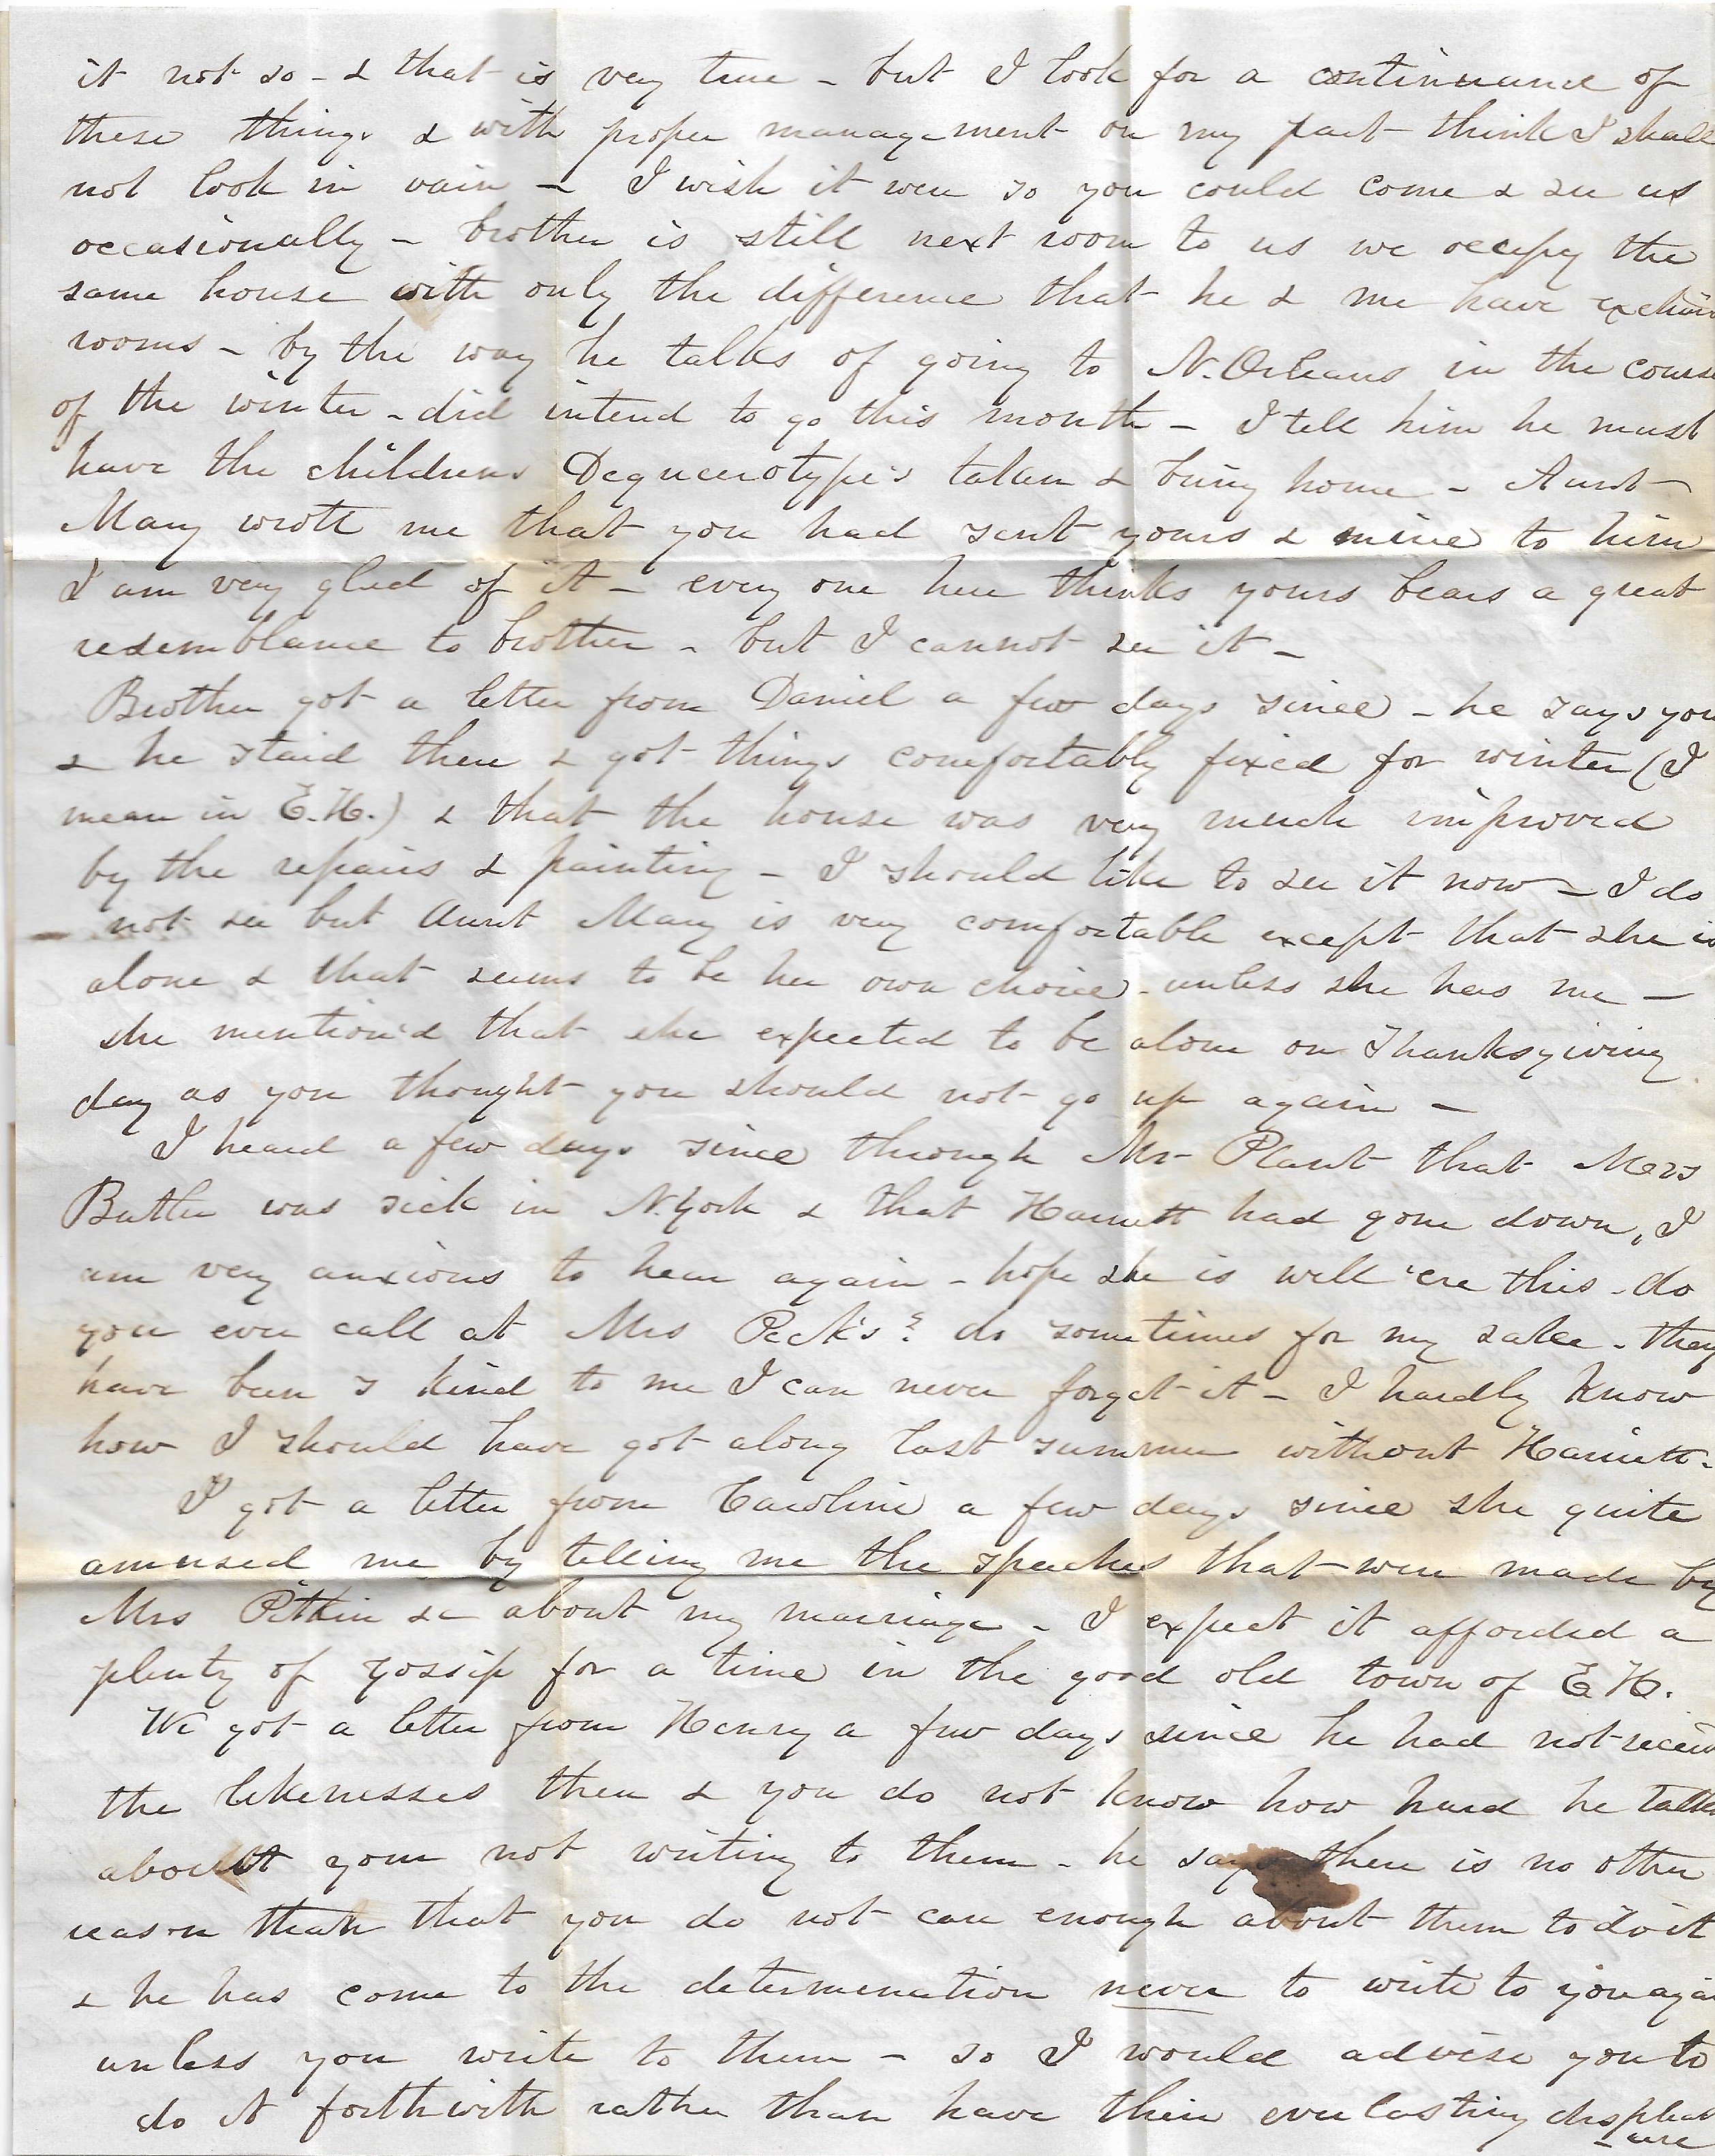 it not so - & that is very true - but I look for a continuance of
these things & with proper management on my part think I shall
not look in vain - I wish it were so you could come & see us
occasionally - brother is still next room to us we occupy the
same house with only the difference that he & me have exchan
rooms - by the way he talks of going to N. Orleans in the course
of the winter - did intend to go this month - I tell him he must
have the childrens Deguerotype's taken & bring home - Aunt
Mary wrote me that you had sent yours & mine to him
I am very glad of it - every one here thinks yours bears a great
resemblance to brother - but I cannot see it -
Brother got a letter from Daniel a few days since - he says you
& he staid there & got things comfortably fixed for winter (I
mean in E.H.) & that the house was very much improved
by the repairs & painting - I should like to see it now - I do
not see but Aunt Mary is very comfortable except that she is
alone & that seems to be her own choice - unless she has me -
she mention'd that she expected to be alone on Thanksgiving
day as you thought you should not go up again -
I heard a few days since through Mr Plant that Mrs
Butler was sick in N. York & that Harriett had gone down, I
am very anxious to hear again - hope she is well 'ere this - do
you ever call at Mrs Peck's? do sometimes for my sake - they
have been s kind to me I can never forget it - I hardly know
how I should have got along last summer without Harriett.
I got a letter from Caroline a few days since she quite
amused me by telling me the speeches that were made by
Mrs Pitkin &c about my marriage - I expect it afforded a
plenty of gossip for a time in the good old town of E.H.
We got a letter from Henry a few days since he had not receiv
the likenesses then & you do not know how hard he talks
about your not writing to them - he says there is no other
reason than that you do not care enough about them to do it
& he has come to the determenation never to write to you agai
unless you write to them - so I would advise you to
do it forthwith rather than have their everlasting displeas
ure